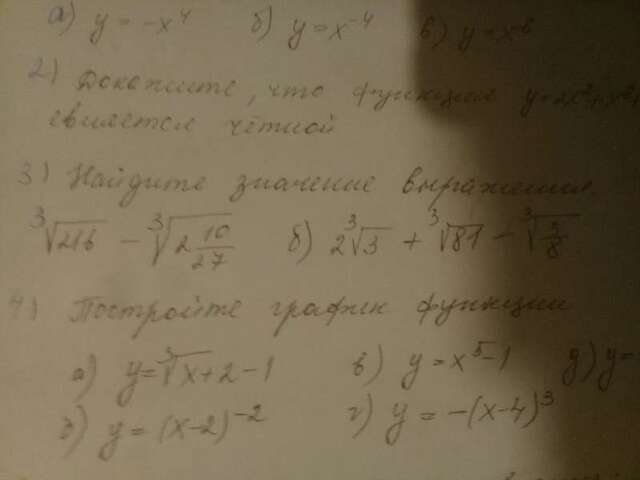 а) y = -x⁴ б) y = x⁻⁴ в) y = x⁶
2) Докажите, что функция y=2x²+x⁶
евляется чётной
3) Найдите значение выражения.
∛216 - ∛(2 10/27) б) 2∛3 + ∛81 - ∛(3/8)
4) Постройте график функции
а) y = ∛x+2 - 1 в) y = x⁵-1 д) y=
б) y = (x-2)⁻² г) y = -(x-4)³